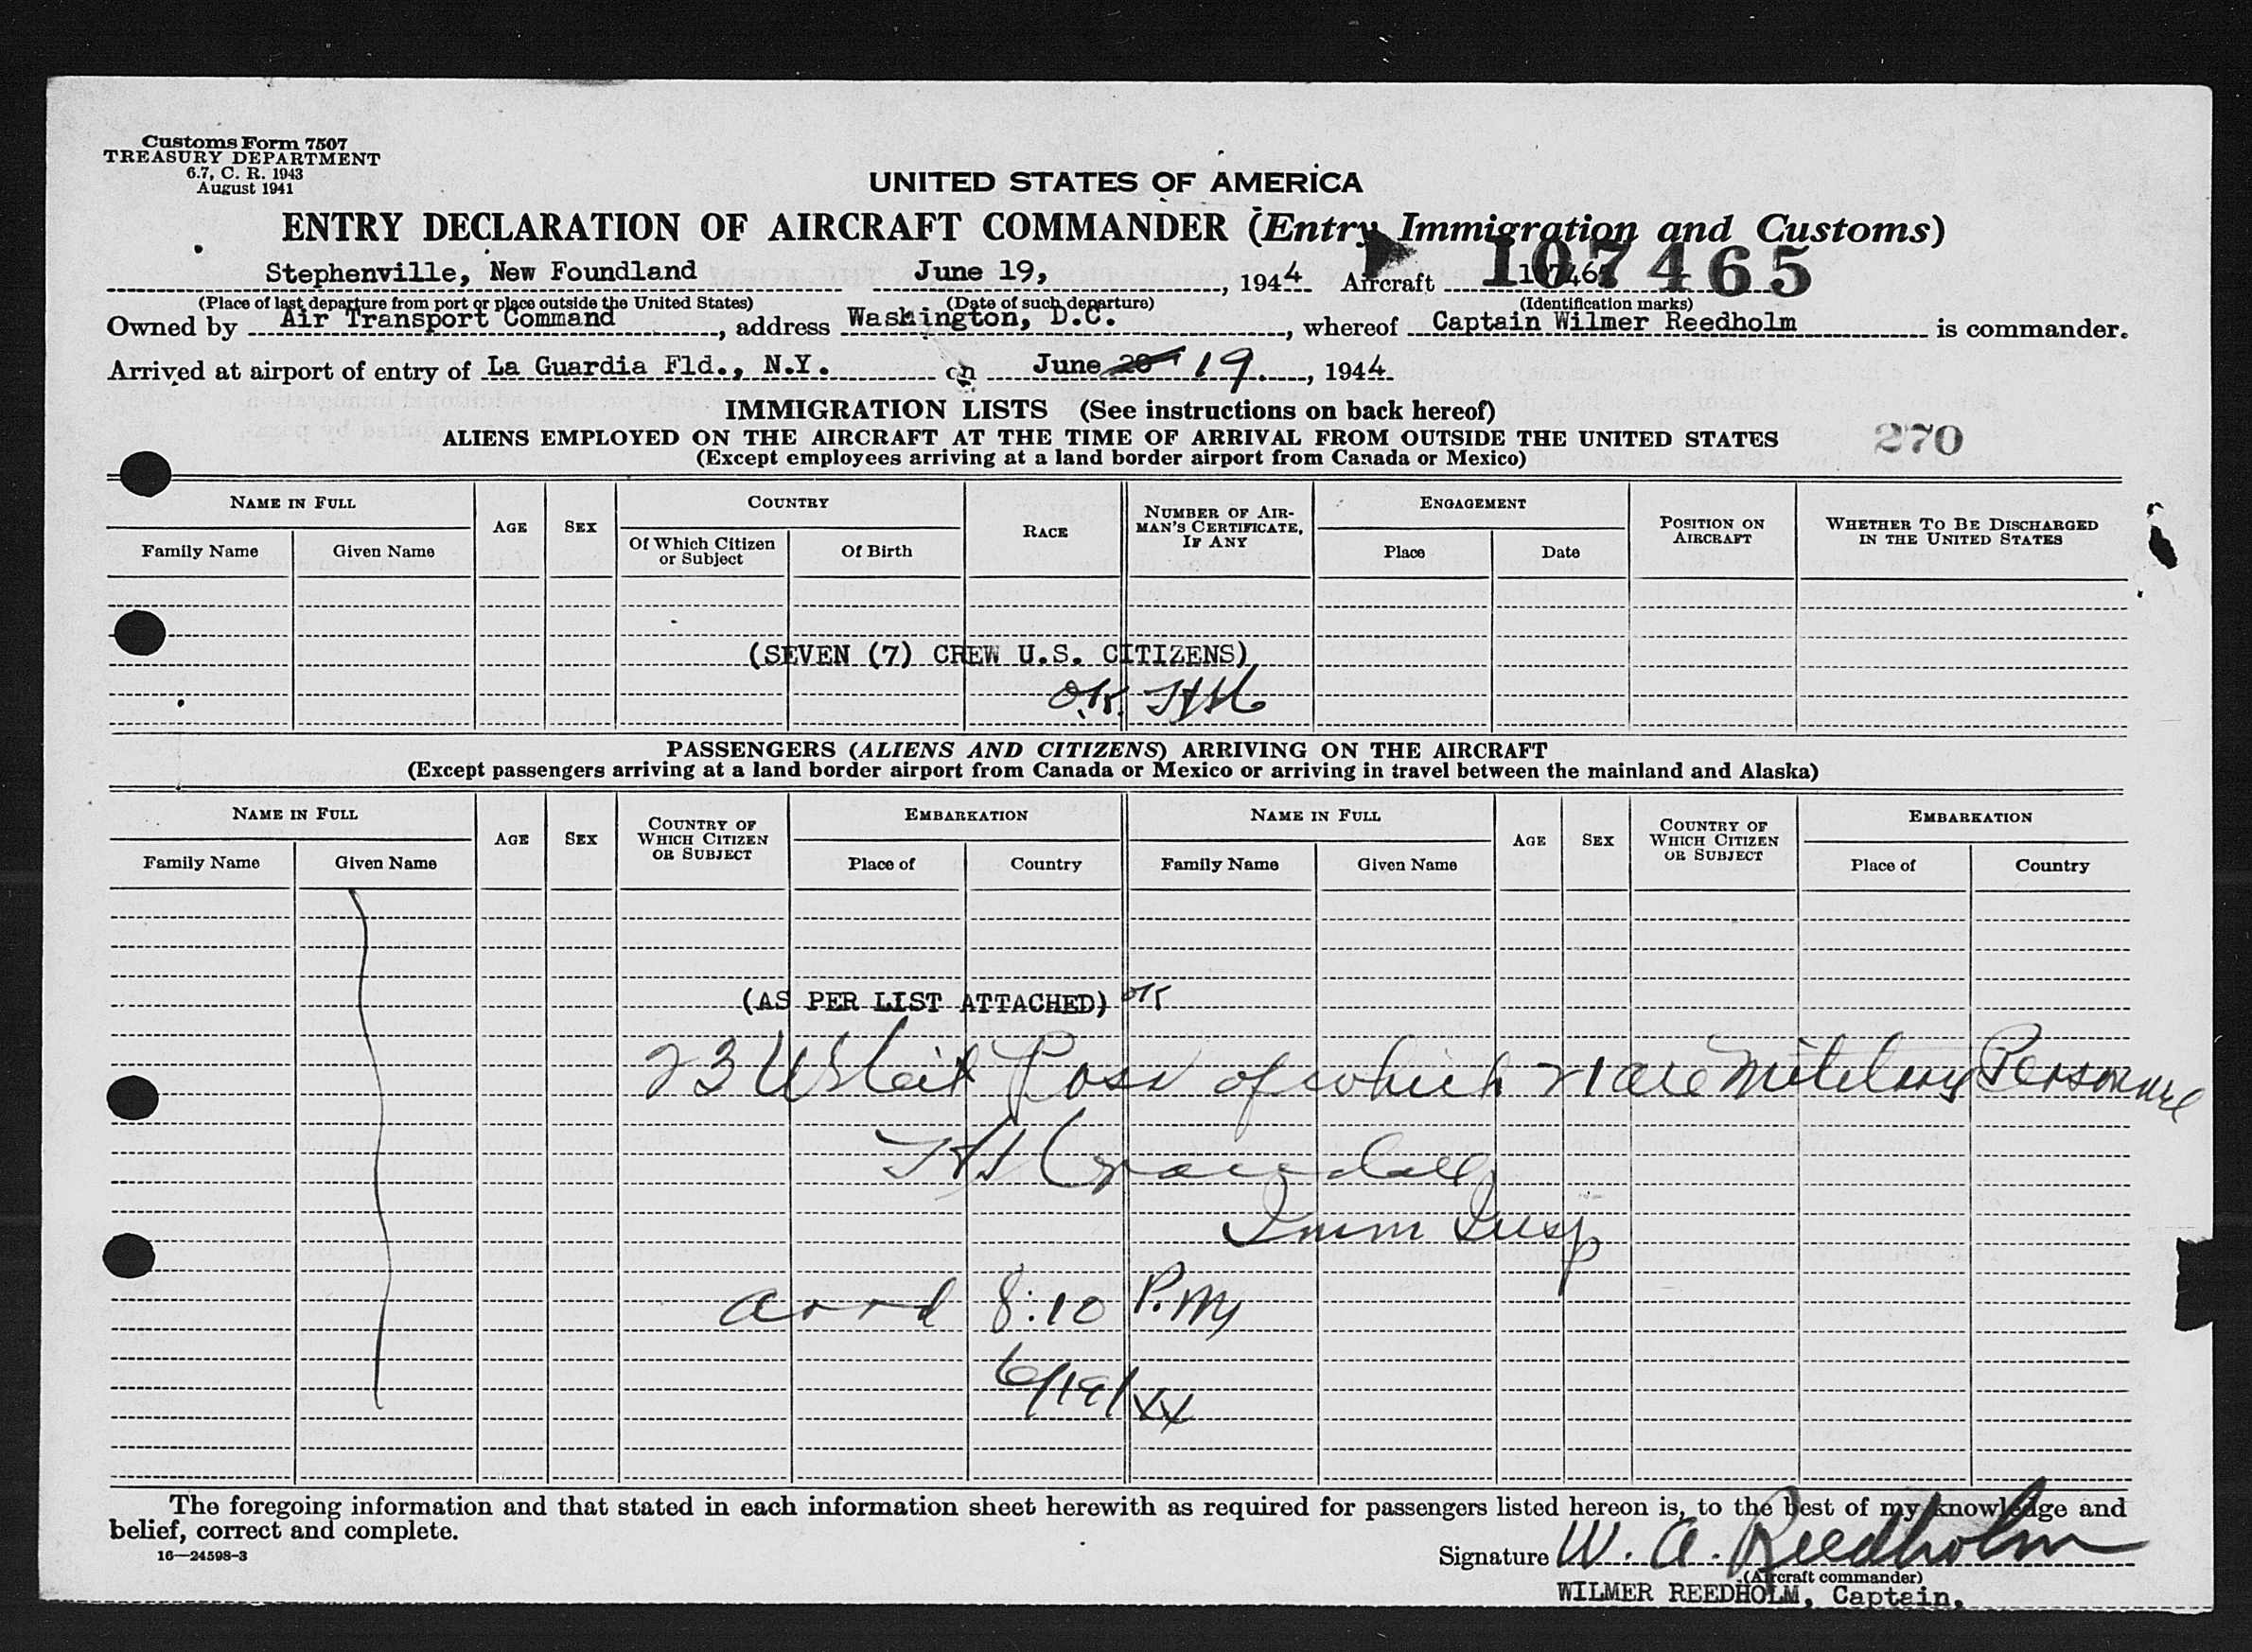 Customs Form 7507
TREASURY DEPARTMENT
6.7, C. R. 1943
August 1941
UNITED STATES OF AMERICA
ENTRY DECLARATION OF AIRCRAFT COMMANDER (Entry Immigration and Customs)
107465
Stephenville, New Foundland June 19, , 1944 Aircraft 107465
(Place of last departure from port or place outside the United States) (Date of such departure) (Identification marks)
Owned by Air Transport Command , address Washington, D.C. , whereof Captain Wilmer Reedholm is commander.
Arrived at airport of entry of La Guardia Fld., N.Y. on June 20 19. , 1944
IMMIGRATION LISTS (See instructions on back hereof)
ALIENS EMPLOYED ON THE AIRCRAFT AT THE TIME OF ARRIVAL FROM OUTSIDE THE UNITED STATES 270
(Except employees arriving at a land border airport from Canada or Mexico)
NAME IN FULL AGE SEX COUNTRY RACE NUMBER OF AIR-MAN'S CERTIFICATE, IF ANY ENGAGEMENT POSITION ON AIRCRAFT WHETHER TO BE DISCHARGED IN THE UNITED STATES
Family Name Given Name Of Which Citizen or Subject Of Birth Place Date
(SEVEN (7) CREW U.S. CITIZENS)
O.K.
PASSENGERS (ALIENS AND CITIZENS) ARRIVING ON THE AIRCRAFT
(Except passengers arriving at a land border airport from Canada or Mexico or arriving in travel between the mainland and Alaska)
NAME IN FULL AGE SEX COUNTRY OF WHICH CITIZEN OR SUBJECT EMBARKATION NAME IN FULL AGE SEX COUNTRY OF WHICH CITIZEN OR SUBJECT EMBARKATION
Family Name Given Name Place of Country Family Name Given Name Place of Country
(AS PER LIST ATTACHED) OK
23 US Cit Pass of which 21 are Military Personnel
Imm Insp
arrd 8:10 P.M
6/19/44
The foregoing information and that stated in each information sheet herewith as required for passengers listed hereon is, to the best of my knowledge and
belief, correct and complete.
16—24598-3
Signature W. A. Reedholm
(Aircraft commander)
WILMER REEDHOLM, Captain.